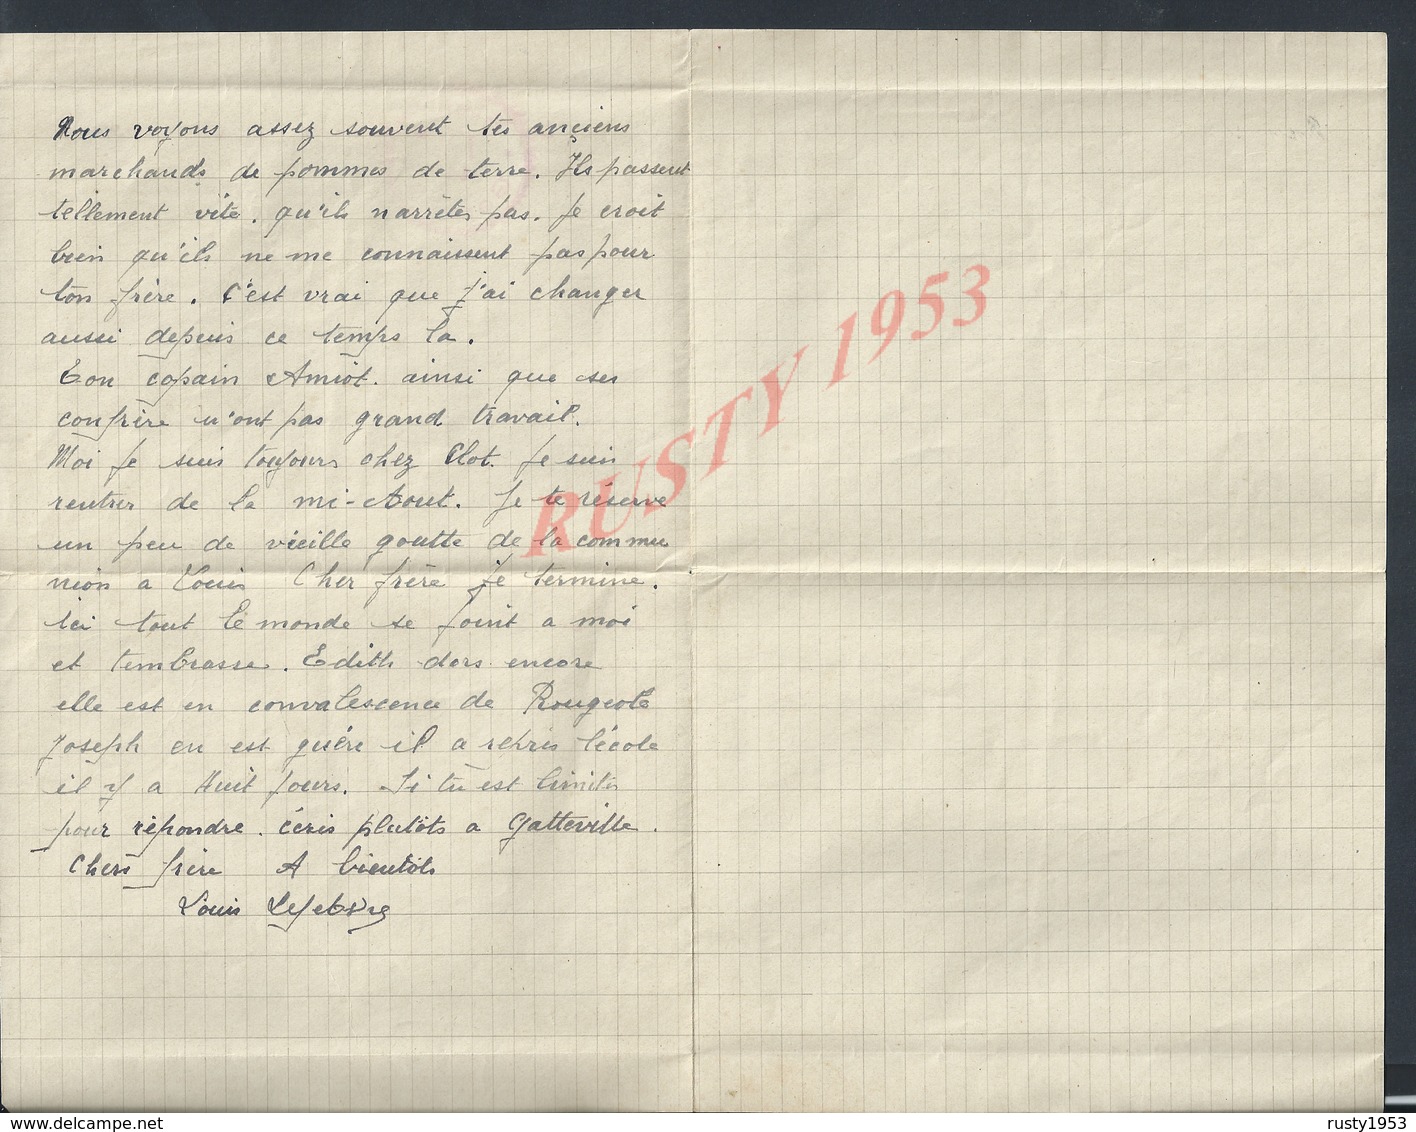 Nous voyons assez souvent tes anciens
marchands de pommes de terre. Ils passent
tellement vite. qu'ils narrêtes pas. Je croit
bien qu'ils ne me connaissent pas pour
ton frère. C'est vrai que j'ai changer
aussi depuis ce temps la.
Ton copain Amiot. ainsi que ses
confrère n'ont pas grand travail.
Moi je suis toujours chez Clot. Je suis
rentrer de la mi-Aout. Je te réserve
un peu de vieille goutte de la commu
nion a Louis Cher frère je termine.
Ici tout le monde se joint a moi
et tembrasse. Edith dors encore
elle est en convalescence de Rougeole
Joseph en est guère il a repris l'école
il y a Huit jours. Si tu est limités
pour répondre. écris plutôts a Gatteville.
Chers frère A bientôts
Louis Lefebvre
RUSTY 1953
www.delcampe.net
rusty1953